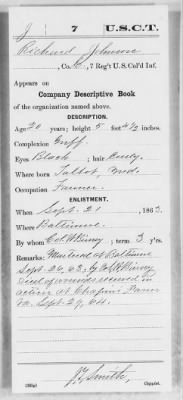 J 7 U.S.C.T.
Richard Johnson
, Co. , 7 Reg't U.S. Col'd Inf.
Appears on
Company Descriptive Book
of the organization named above.
DESCRIPTION.
Age 20 years; height 5 feet 4 1/2 inches.
Complexion Griff
Eyes Black ; hair Curly.
Where born Talbot, Md.
Occupation Farmer.
ENLISTMENT.
When Sept. 21 , 1863.
Where Baltimore.
By whom Col. Wm Birney ; term 3 y'rs.
Remarks: Mustered at Baltimore
Sept. 26, 63. by Col Wm Birney
Died of wounds received in
action at Chapin's Farm
Va. Sept. 29, 64.
J. Smith,
Copyist.